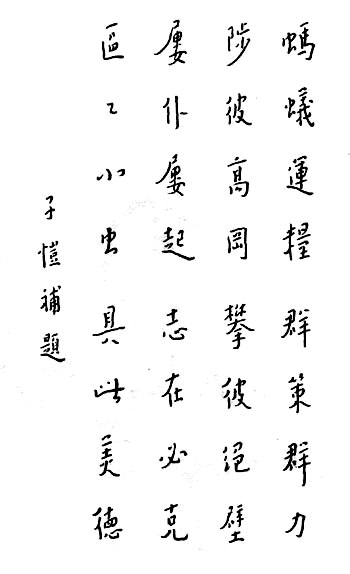 螞蟻運糧群策群力
陟彼高岡攀彼絕壁
屢仆屢起志在必克
區〻小虫具此美德
子愷補題